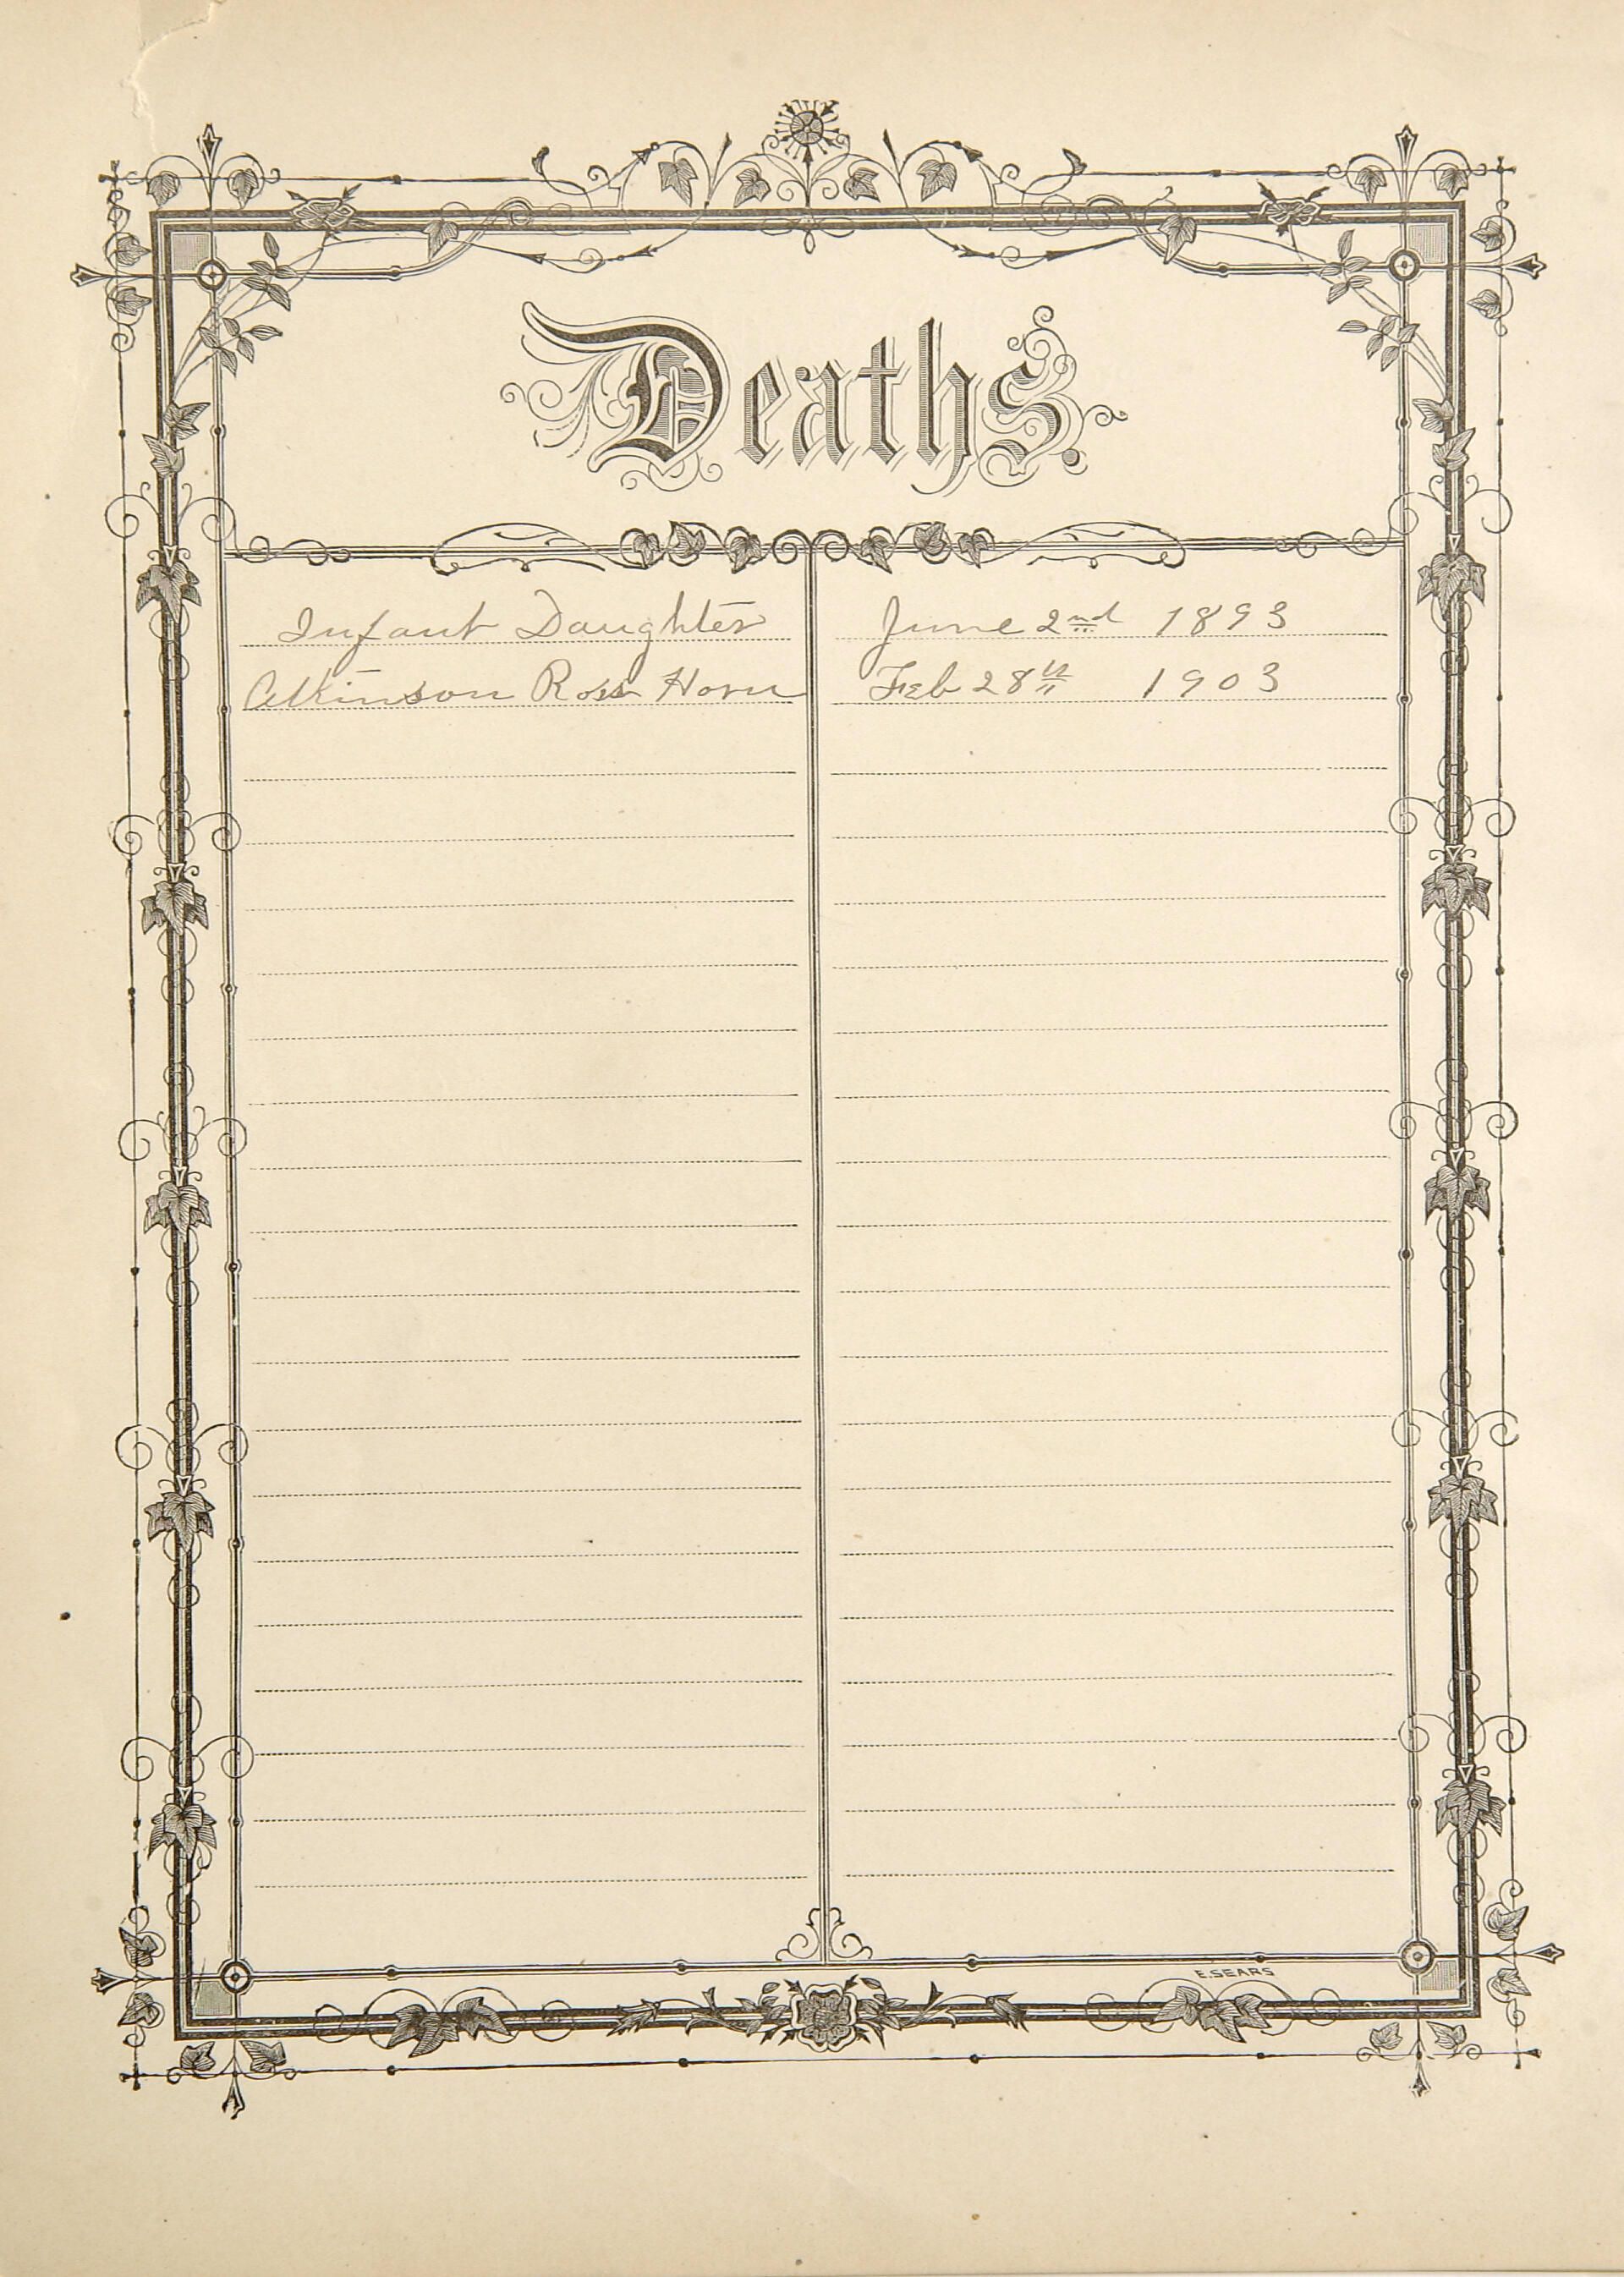 Deaths.
Infant Daughter June 2nd 1893
Atkinson Ross Horn Feb 28th 1903
E.SEARS